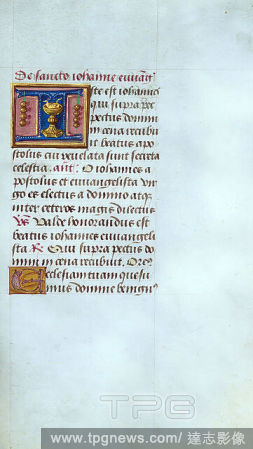 De sancto iohanne euuāg̃t
Iste est iohannes
qui supra pec
pectus domini
in cena recubu
it beatus apo
stolus cui reuelata sunt secreta
celestia. añt. O iohannes a
postolus et euuangelista vir
go es electus a domino atq̃
inter ceteros magis dilectus
V̄s Valde honorandus est
beatus iohannes euuangeli
sta R̄ Qui supra pectus do
mini in cena recubuit. Ore
Ecclesiam tuam quesu
mus domine benign
TPG
www.tpgnews.com/ 達志影像